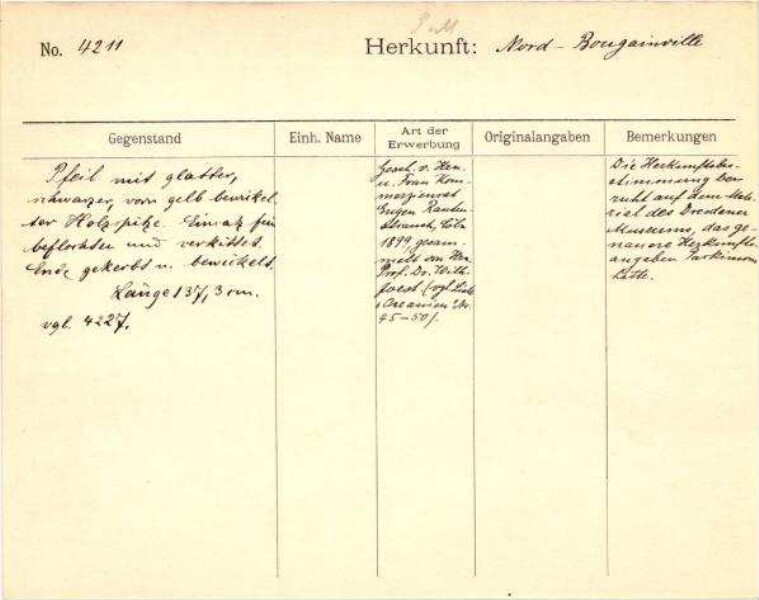 No. 4211
Herkunft: Nord - Bougainville
Gegenstand
Einh. Name
Art der
Erwerbung
Originalangaben
Bemerkungen
Pfeil mit glatter,
schwarzer, vorn gelb bewickel
ter Holzspitze. Einsatz fein
beflochten und verkittet.
Ende gekerbt u. bewickelt.
Länge 137,3 cm.
vgl. 4227.
Gesch. v. Hrn.
u. Frau Kom-
merzienrat
Eugen Rauten-
strauch, Cöln
1899, gesam-
melt von Hrn.
Prof. Dr. Wilh.
Joest (vgl. Liste
Oceanien Nr.
45-50).
Die Herkunftsbe-
stimmung be
ruht auf dem Mate-
rial des Dresdener
Museums, das ge-
nauere Herkunfts-
angaben Parkinsons
hatte.